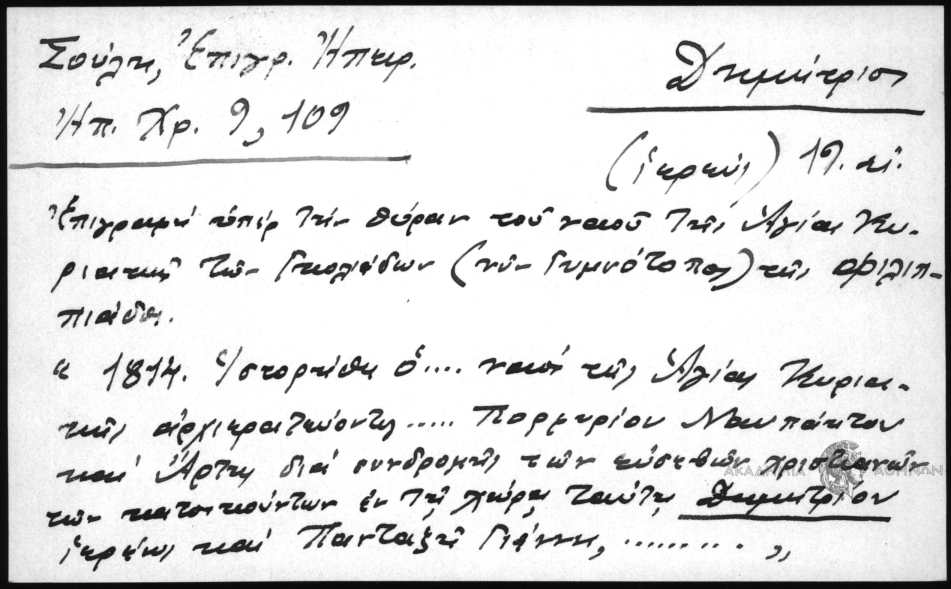 Σούλη, Ἐπιγρ. Ἠπειρ.
Ἠπ. Χρ. 9, 109
Δημήτριος
(ἱερεύς) 19. αἰ.
Ἐπιγραφή ὑπέρ τήν θύραν τοῦ ναοῦ τῆς Ἁγίας Κυ-
ριακῆς τῶν Γκολιάδων (νῦν Γυμνότοπος) τῆς Φιλιπ-
πιάδος.
" 1814. Ἱστορήθη ὁ.... ναός τῆς Ἁγίας Κυρια-
κῆς ἀρχιερατεύοντος..... Πορφυρίου Ναυπάκτου
καί Ἄρτης διά συνδρομῆς τῶν εὐσεβῶν χριστιανῶν
τῶν κατοικούντων ἐν τῇ χώρᾳ ταύτῃ Δημητρίου
ἱερέως καί Πανταζῆ Γιάννη, ......... "
ΑΚΑΔΗΜΙΑ ΑΘΗΝΩΝ